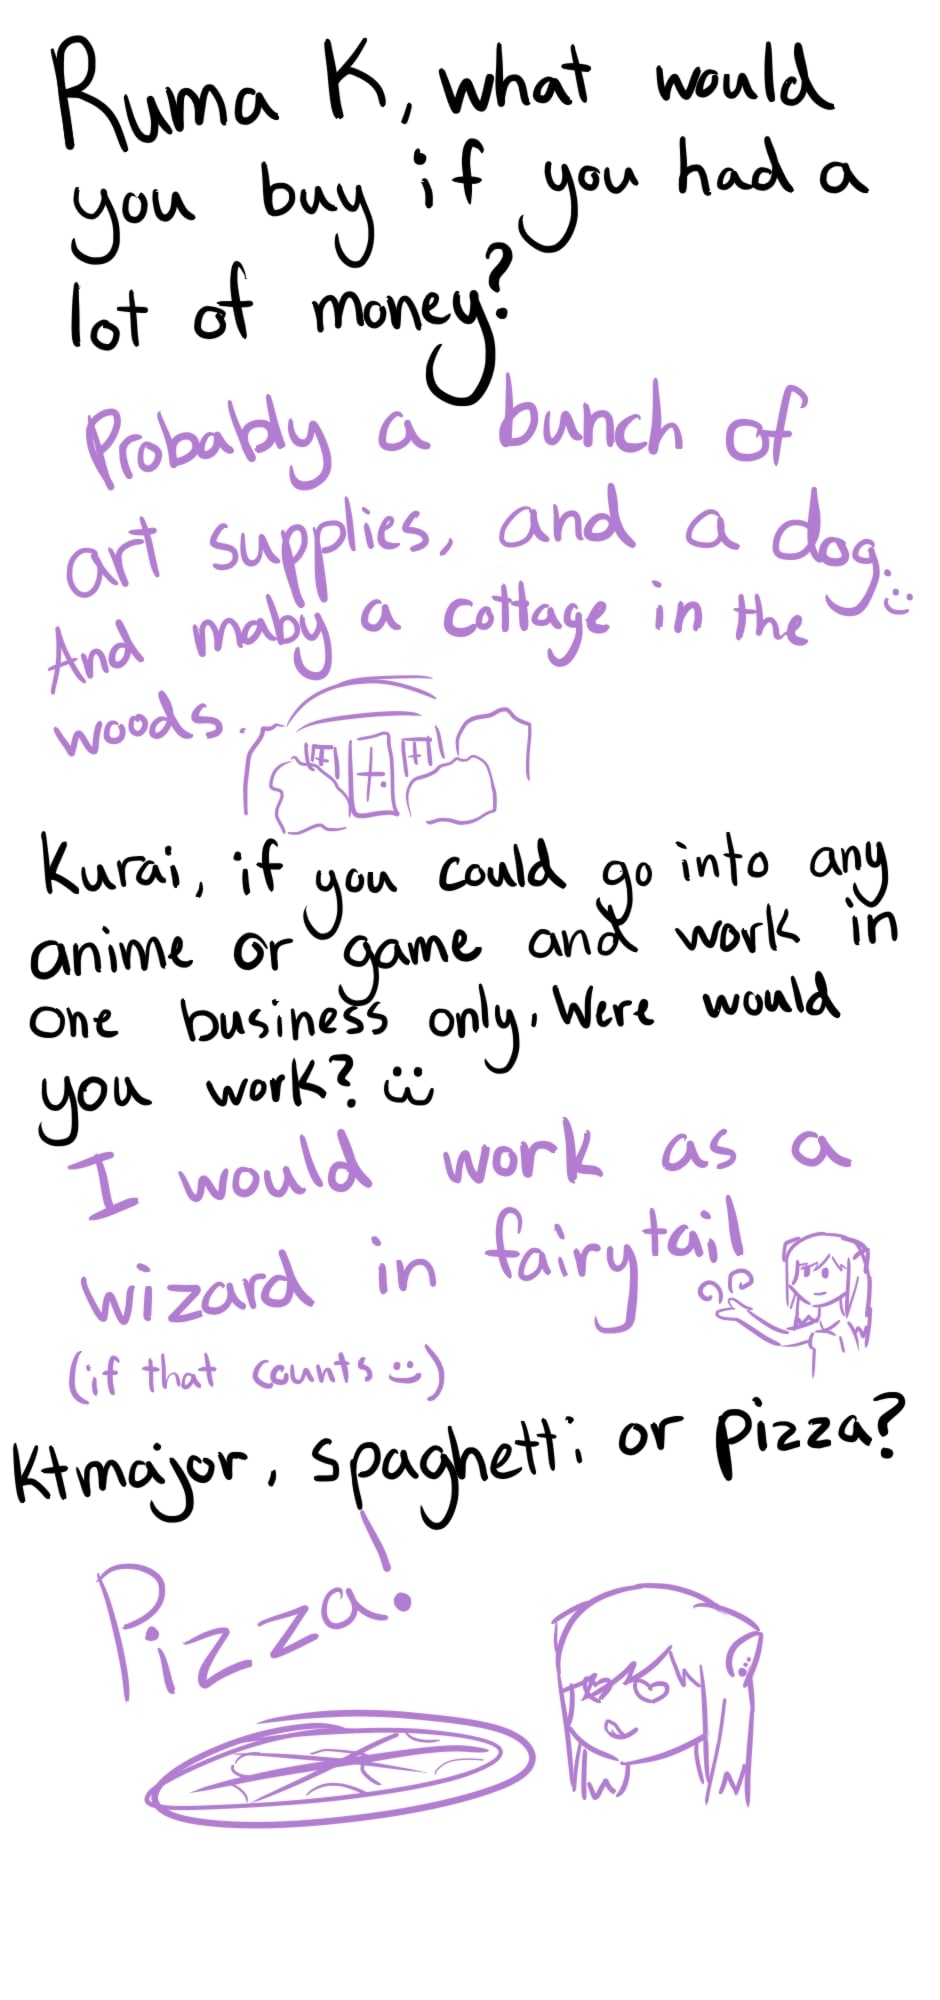 Ruma K, what would
you buy if you had a
lot of money?
Probably a bunch of
art supplies, and a dog. :)
And maby a cottage in the
woods.
Kurai, if you could go into any
anime or game and work in
one business only, Were would
you work? :3
I would work as a
wizard in fairytail
(if that counts :))
Ktmajor, spaghetti or pizza?
Pizza!